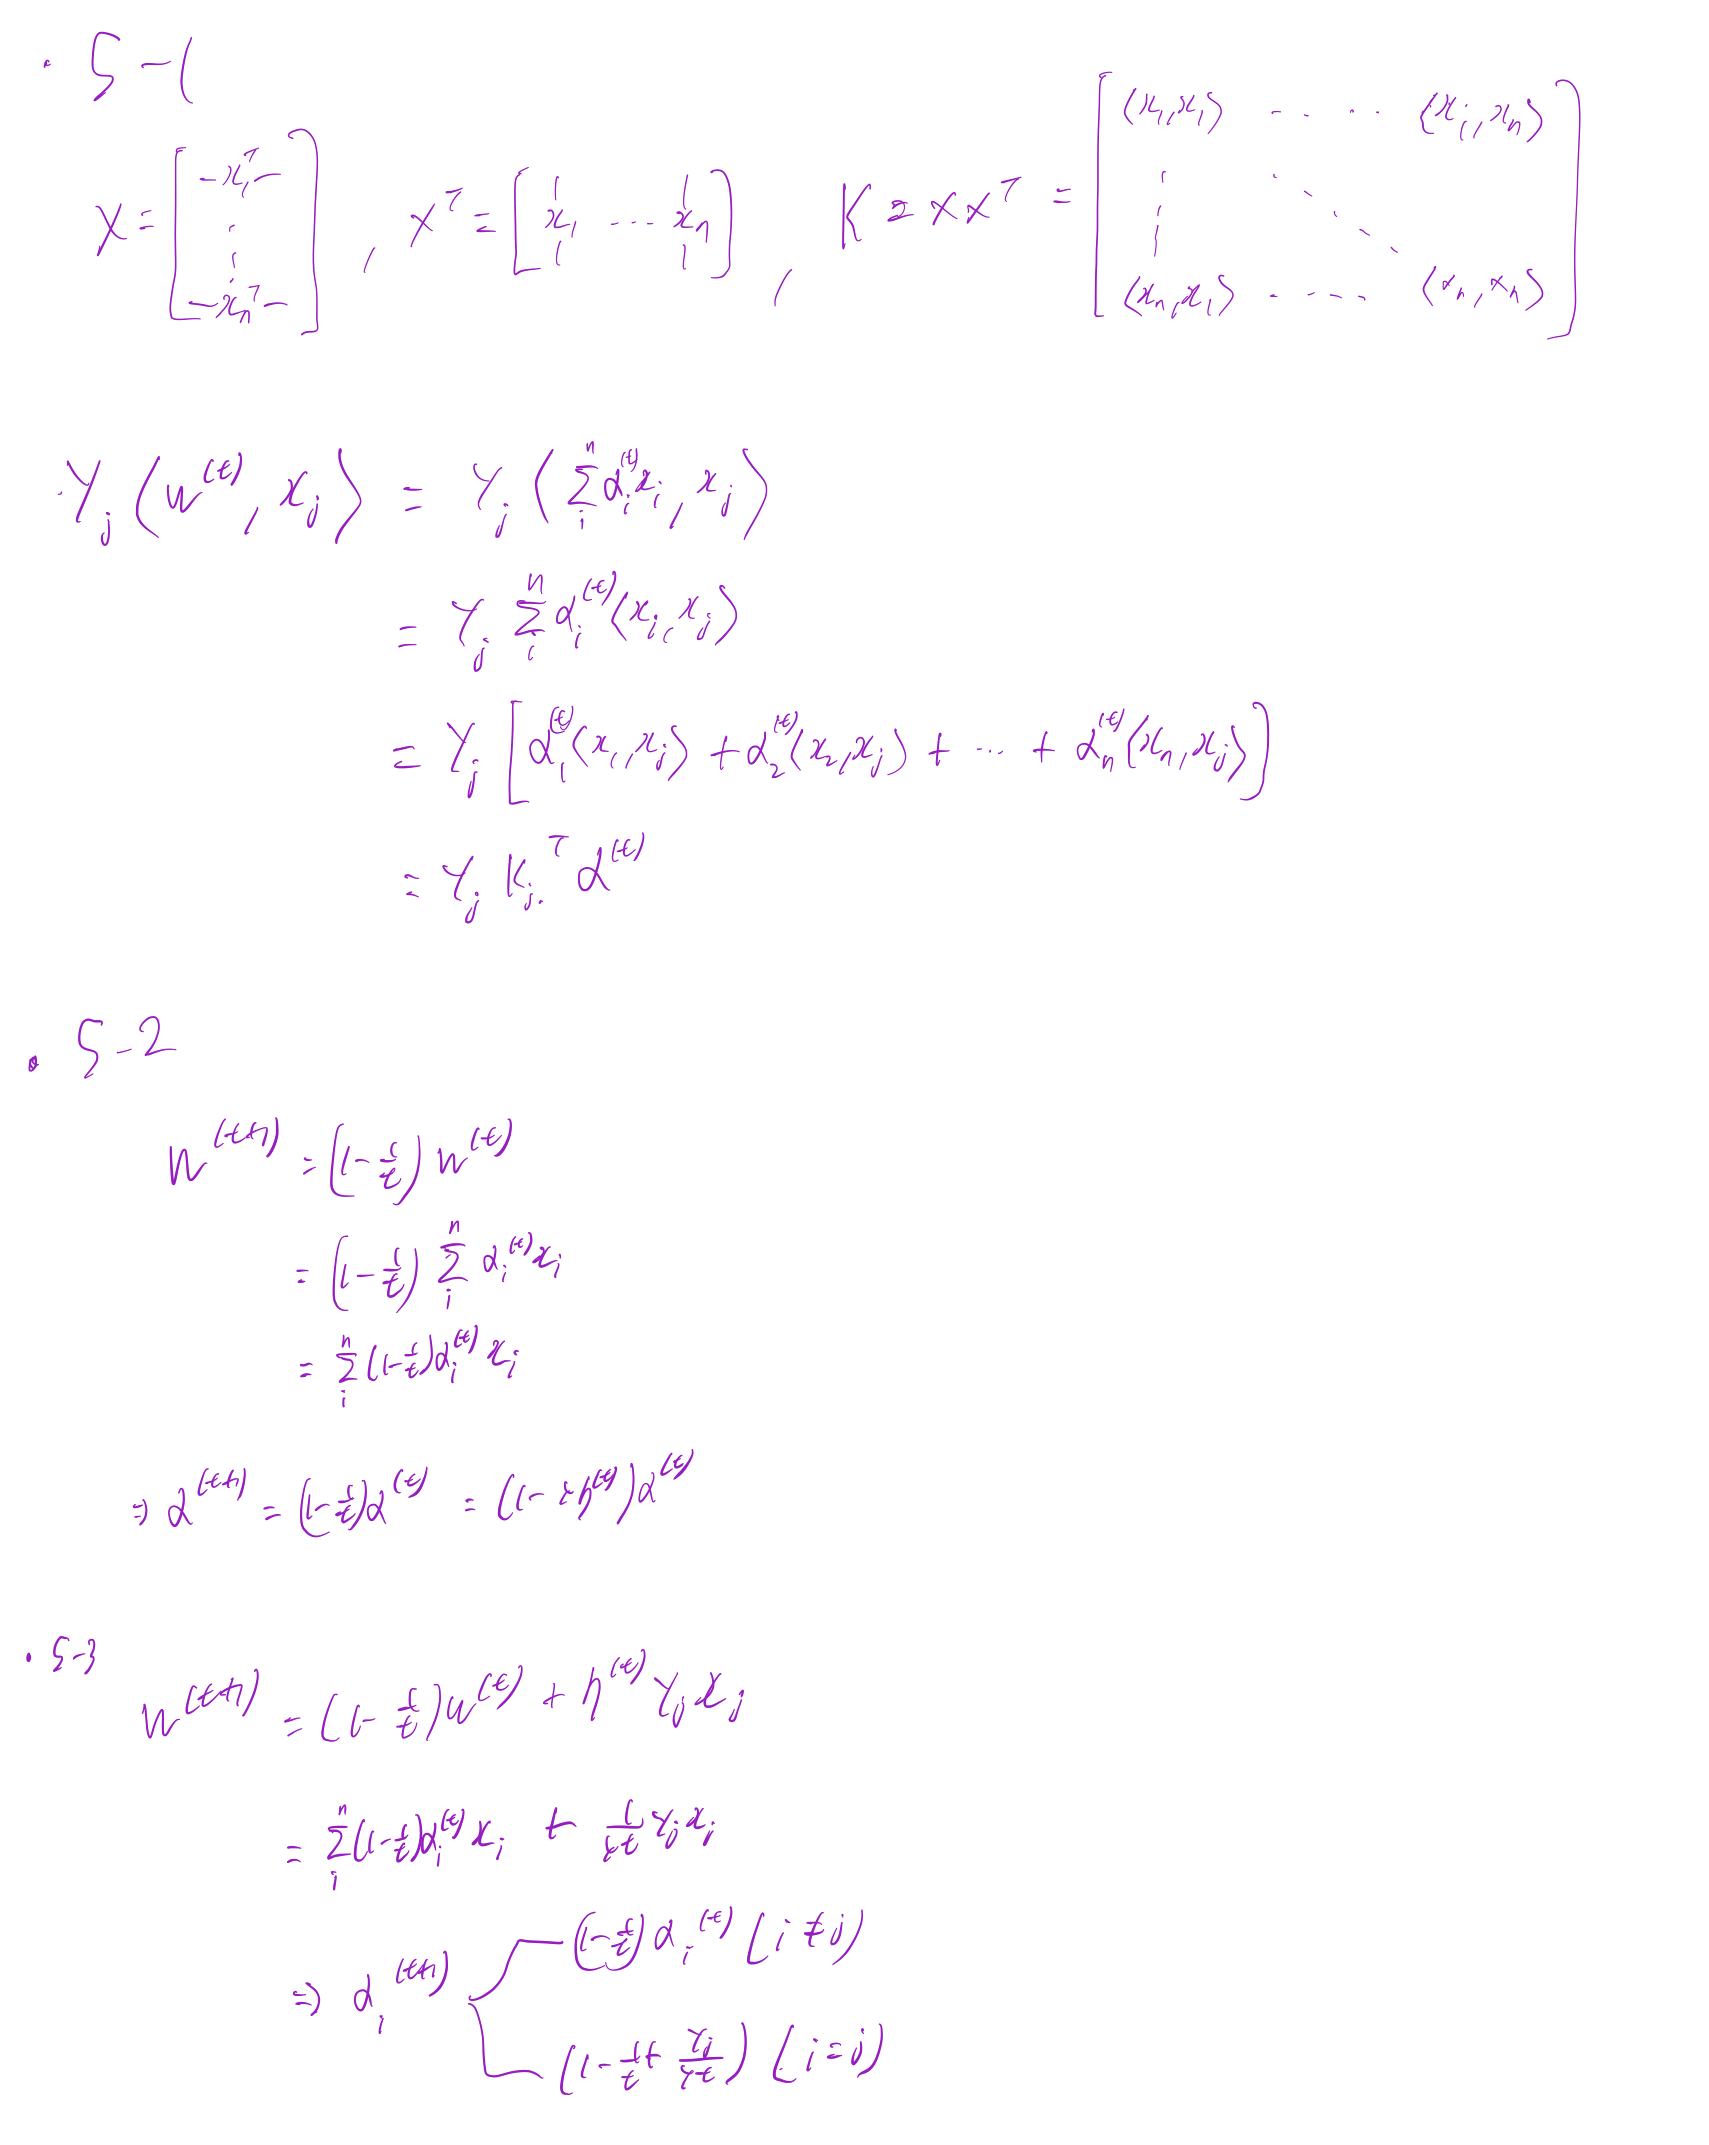 · 5-1
X = [ -x₁ᵀ- ⋮ -xₙᵀ- ] , Xᵀ = [ x₁ ··· xₙ ] , K = XXᵀ = [ ⟨x₁,x₁⟩ ···· ⟨x₁,xₙ⟩ ⋮ ⋱ ⟨xₙ,x₁⟩ ···· ⟨xₙ,xₙ⟩ ]
· y_j ⟨w^(t), x_j⟩ = y_j ⟨Σ_i^n α_i^(t) x_i, x_j⟩
= y_j Σ_i^n α_i^(t) ⟨x_i, x_j⟩
= y_j [α₁^(t)⟨x₁,x_j⟩ + α₂^(t)⟨x₂,x_j⟩ + ··· + αₙ^(t)⟨xₙ,x_j⟩]
= y_j K_j.ᵀ α^(t)
· 5-2
w^(t+1) = (1-1/t) w^(t)
= (1-1/t) Σ_i^n α_i^(t) x_i
= Σ_i^n (1-1/t) α_i^(t) x_i
⇒ α^(t+1) = (1-1/t) α^(t) = (1-λη^(t)) α^(t)
· 5-3
w^(t+1) = (1-1/t) w^(t) + η^(t) y_j x_j
= Σ_i^n (1-1/t) α_i^(t) x_i + 1/(λt) y_j x_j
⇒ α_i^(t+1) { (1-1/t) α_i^(t) (i≠j)
(1-1/t + y_j/(λt)) (i=j)